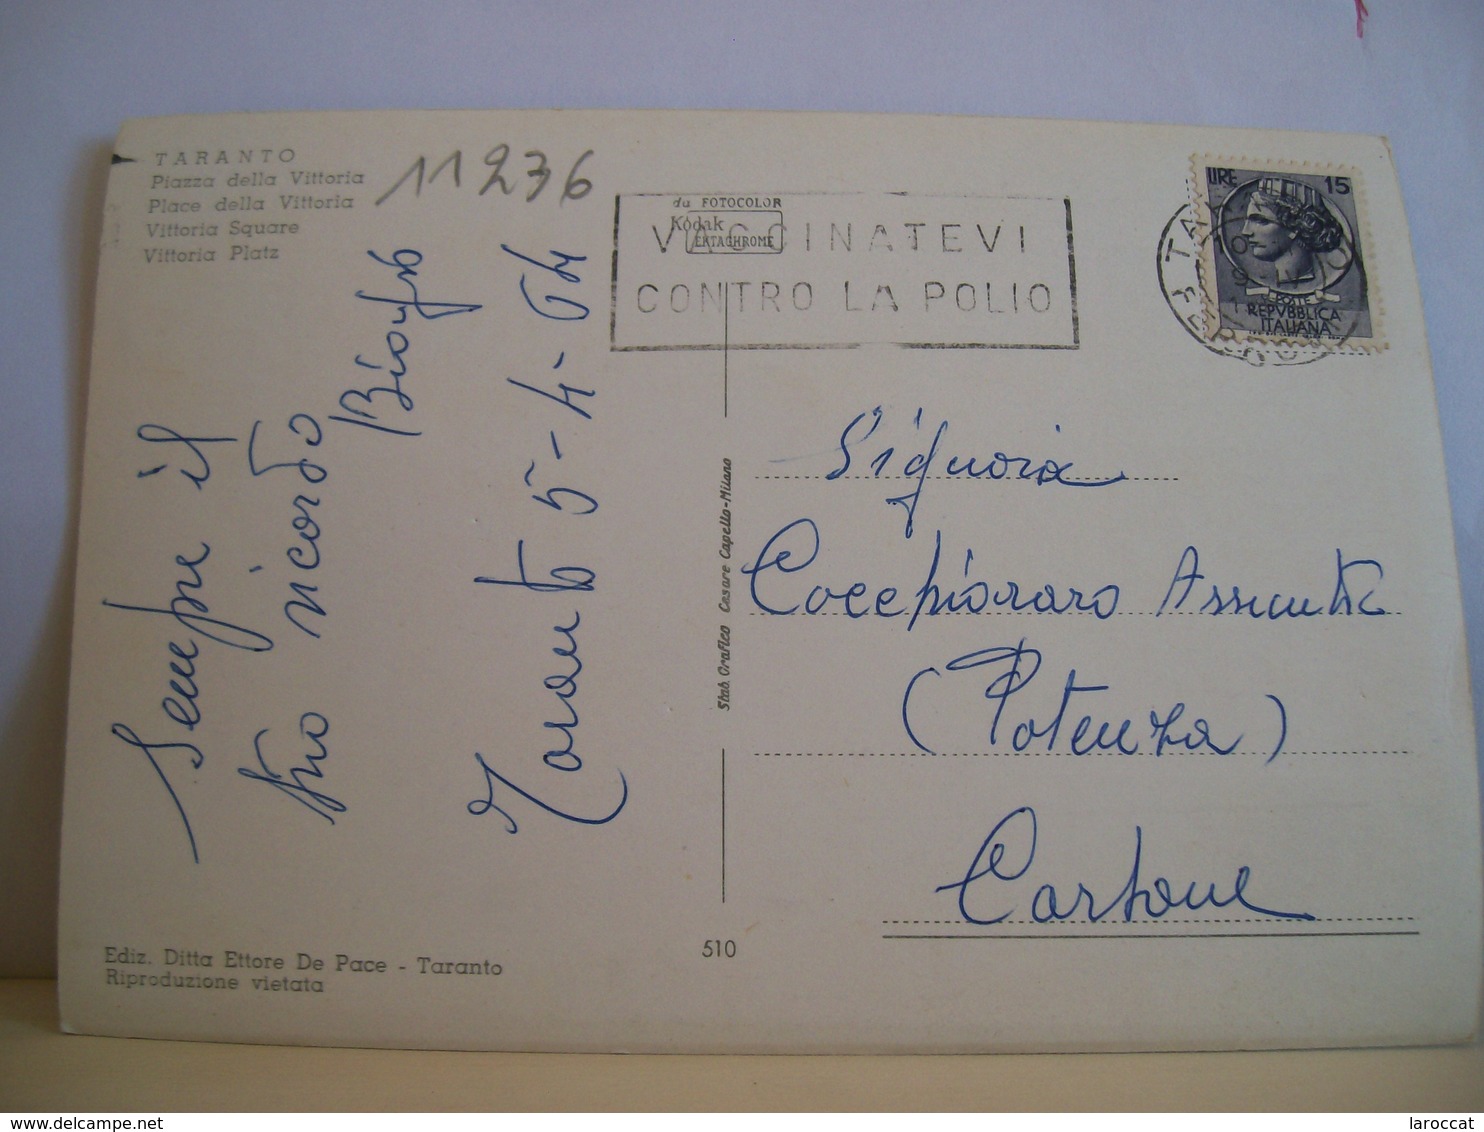 TARANTO
Piazza della Vittoria
Place della Vittoria
Vittoria Square
Vittoria Platz
11236
da FOTOCOLOR
Kodak
EKTACHROME
VACCINATEVI
CONTRO LA POLIO
LIRE 15
POSTE
REPVBBLICA
ITALIANA
Sempre il
tuo ricordo
Taranto 5-4-64
Signora
Cocchiararo Assunta
(Potenza)
Carbone
Stab. Grafico Cesare Capello-Milano
510
Ediz. Ditta Ettore De Pace - Taranto
Riproduzione vietata
delcampe.net
laroccat